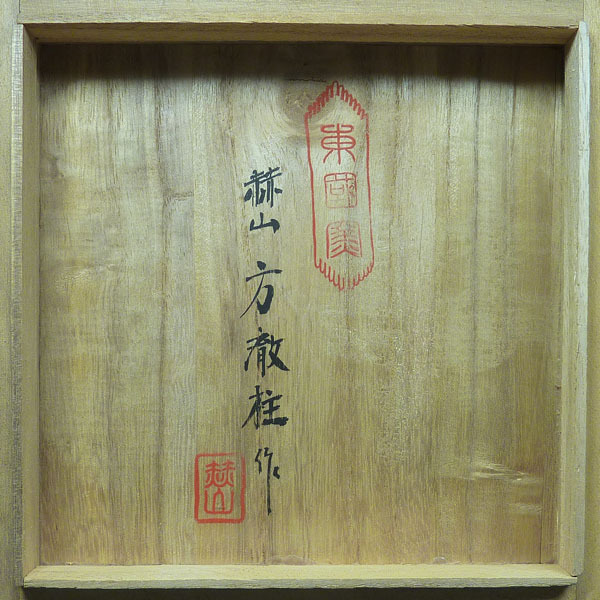 東國窯
赫山 方徹柱 作
赫山